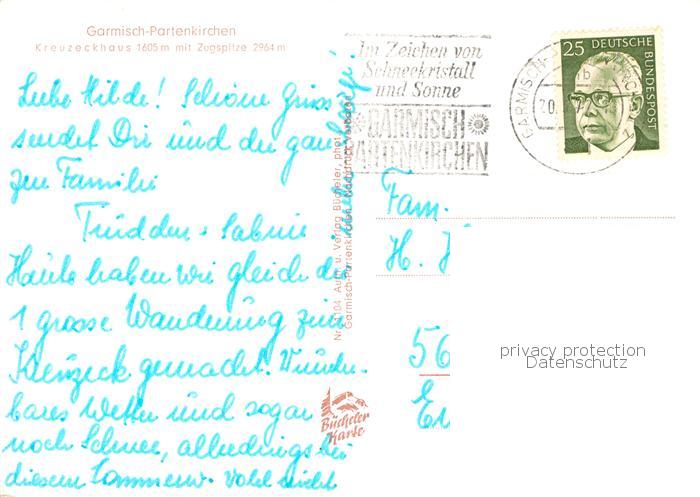 Garmisch-Partenkirchen
Kreuzeckhaus 1605 m mit Zugspitze 2964 m
Im Zeichen von
Schneekristall
und Sonne
GARMISCH
PARTENKIRCHEN
GARMISCH-
25 DEUTSCHE
BUNDESPOST
Liebe Hilde! Schöne Grüsse
sendet Dir und der gan-
zen Familie
Trudchen + Sabine
Heute haben wir gleich die
1 grosse Wanderung zum
Kreuzeck gemacht. Wunder-
bares Wetter und sogar
noch Schnee, allerdings bei
diesem Sommerw. wohl nicht
Nr. 104 Aufn. u. Verlag Bücheler, phot.
Garmisch-Partenkirchen. Nachdruck verboten
Bücheler
Karte
Fam.
H.
56
privacy protection
Datenschutz